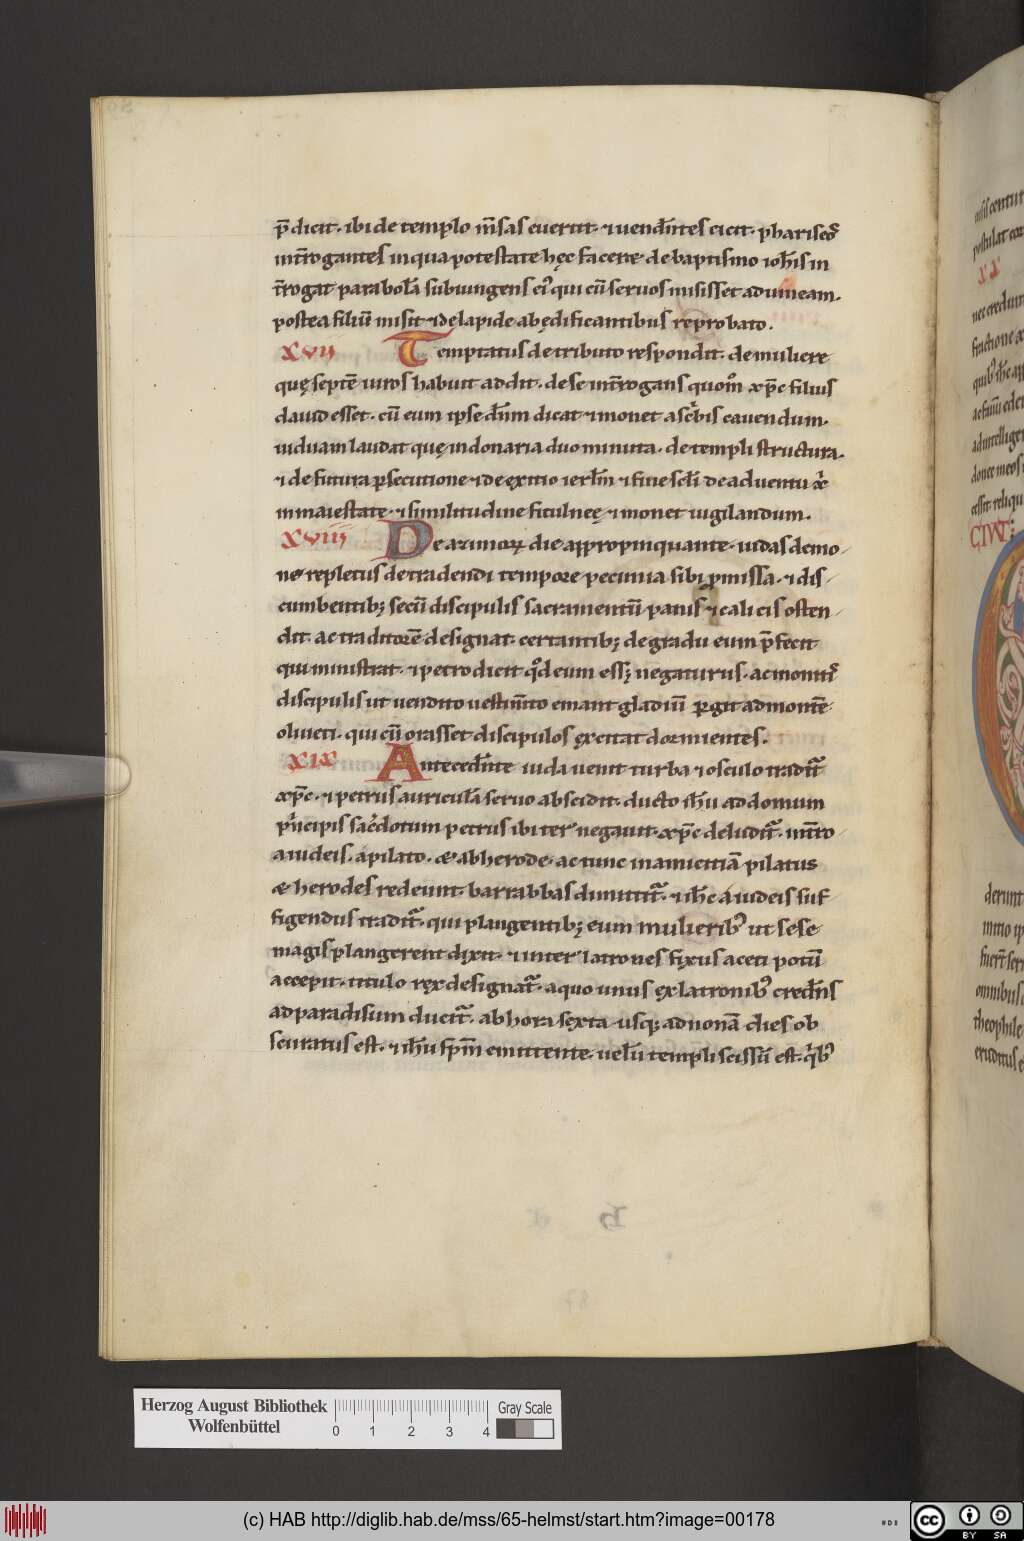 p̄dicit. ibi de templo m̄sas euertit. ⁊ uend̄ntes eicit. phariseꝰ
int̄rogantes in qua potestate hęc facere de baptismo ioh̄is in
t̄rogat parabolā subiungens eiꝰ qui cū seruos misisset ad uineam.
postea filiū misit ⁊ de lapide ab ędificantibus reprobato.
XVII Temptatus de tributo respondit. de muliere
quę septē uiros habuit addit. de se int̄rogans quom̊ xp̄c filius
dauid esset. cū eum ipse dn̄m dicat ⁊ monet a sc̄bis cauendum.
uiduam laudat quę in donaria duo minuta. de templi structura.
⁊ de futura ꝑsecutione ⁊ de exitio ierl̄m ⁊ fine scl̄i de aduentu
in maiestate. ⁊ similitudine ficulneę ⁊ monet uigilandum.
XVIII De azimoꝝ die appropinquante. iudas demo
ne repletus de tradendi tempore pecunia sibi ꝓmissa. ⁊ dis
cumbentibꝫ secū discipulis sacramentū panis ⁊ calicis osten
dit. ac traditorē designat. certantibꝫ de gradu eum p̄fecit
qui ministrat. ⁊ petro dicit qd̊ eum essꝫ negaturus. ac monitꝰ
discipulis ut uendito uestim̄to emant gladiū ꝑgit ad montē
oliueti. qui cū orasset discipulos excitat dormientes.
XIX Anteced̄nte iuda uenit turba ⁊ osculo tradit̄
xp̄c. ⁊ petrus auriculā seruo abscidit. ducto ih̄u ad domum
pͥncipis sac̄dotum petrus ibi ter negauit. xp̄c deludit̄. int̄ro
a iudeis. a pilato. & ab herode. ac tunc in amicitiā pilatus
& herodes redeunt. barrabbas dimittit̄. ⁊ ih̄c a iudeis suf
figendus tradit̄. qui plangentibꝫ eum mulieribꝰ ut se se
magis plangerent dixit. ⁊ inter latrones fixus aceti potū
accepit. titulo rex designat̄. a quo unus ex latronibꝰ cred̄ns
ad paradisum ducit̄. ab hora sexta usqꝫ ad nonā dies ob
scuratus est. ⁊ ih̄u sp̄m emittente. uelū templi scissū est. qͥbꝰ
XX
derunt
theophile
omnibus
Herzog August Bibliothek
Wolfenbüttel
0 1 2 3 4
Gray Scale
(c) HAB http://diglib.hab.de/mss/65-helmst/start.htm?image=00178
cc BY SA